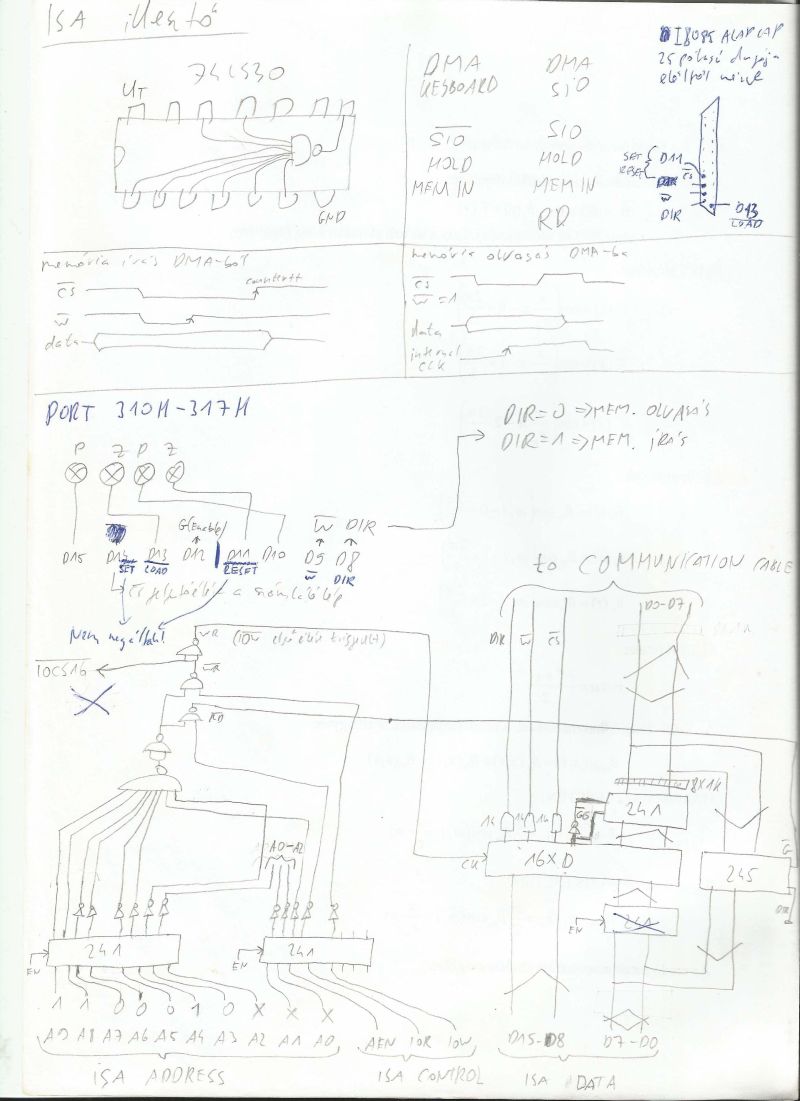 ISA illesztő
74LS30
UT
GND
DMA DMA
KEYBOARD SIO
SIO SIO
HOLD HOLD
MEM IN MEM IN
RD
I8085 ALAPLAP
25 pólusú dugója
elölről nézve
SET
RESET
D11
CS
W
DIR
D13
LOAD
memória írás DMA-ból
CS
counter++
W
data
memória olvasás DMA-ba
CS
W = 1
data
internal
CLK
PORT 310H-317H
DIR=0 => MEM. OLVASÁS
DIR=1 => MEM. ÍRÁS
P Z P Z
G(Enable) W DIR
D15 D14 D13 D12 D11 D10 D9 D8
SET LOAD RESET W DIR
a számlálólép
Nem megáll
to COMMUNICATION CABLE
WR (IOW első élére triggerelt)
DIR W CS D0-D7
IOCS16
WR
RD
8X1K
241
1k 1k 1k
G
A0-A2
CK 16XD
245
G
DIR
EN 241
EN 241
EN 241
1 1 0 0 0 1 0 X X X
A9 A8 A7 A6 A5 A4 A3 A2 A1 A0
AEN IOR IOW
D15-D8
D7-D0
ISA ADDRESS
ISA CONTROL
ISA DATA